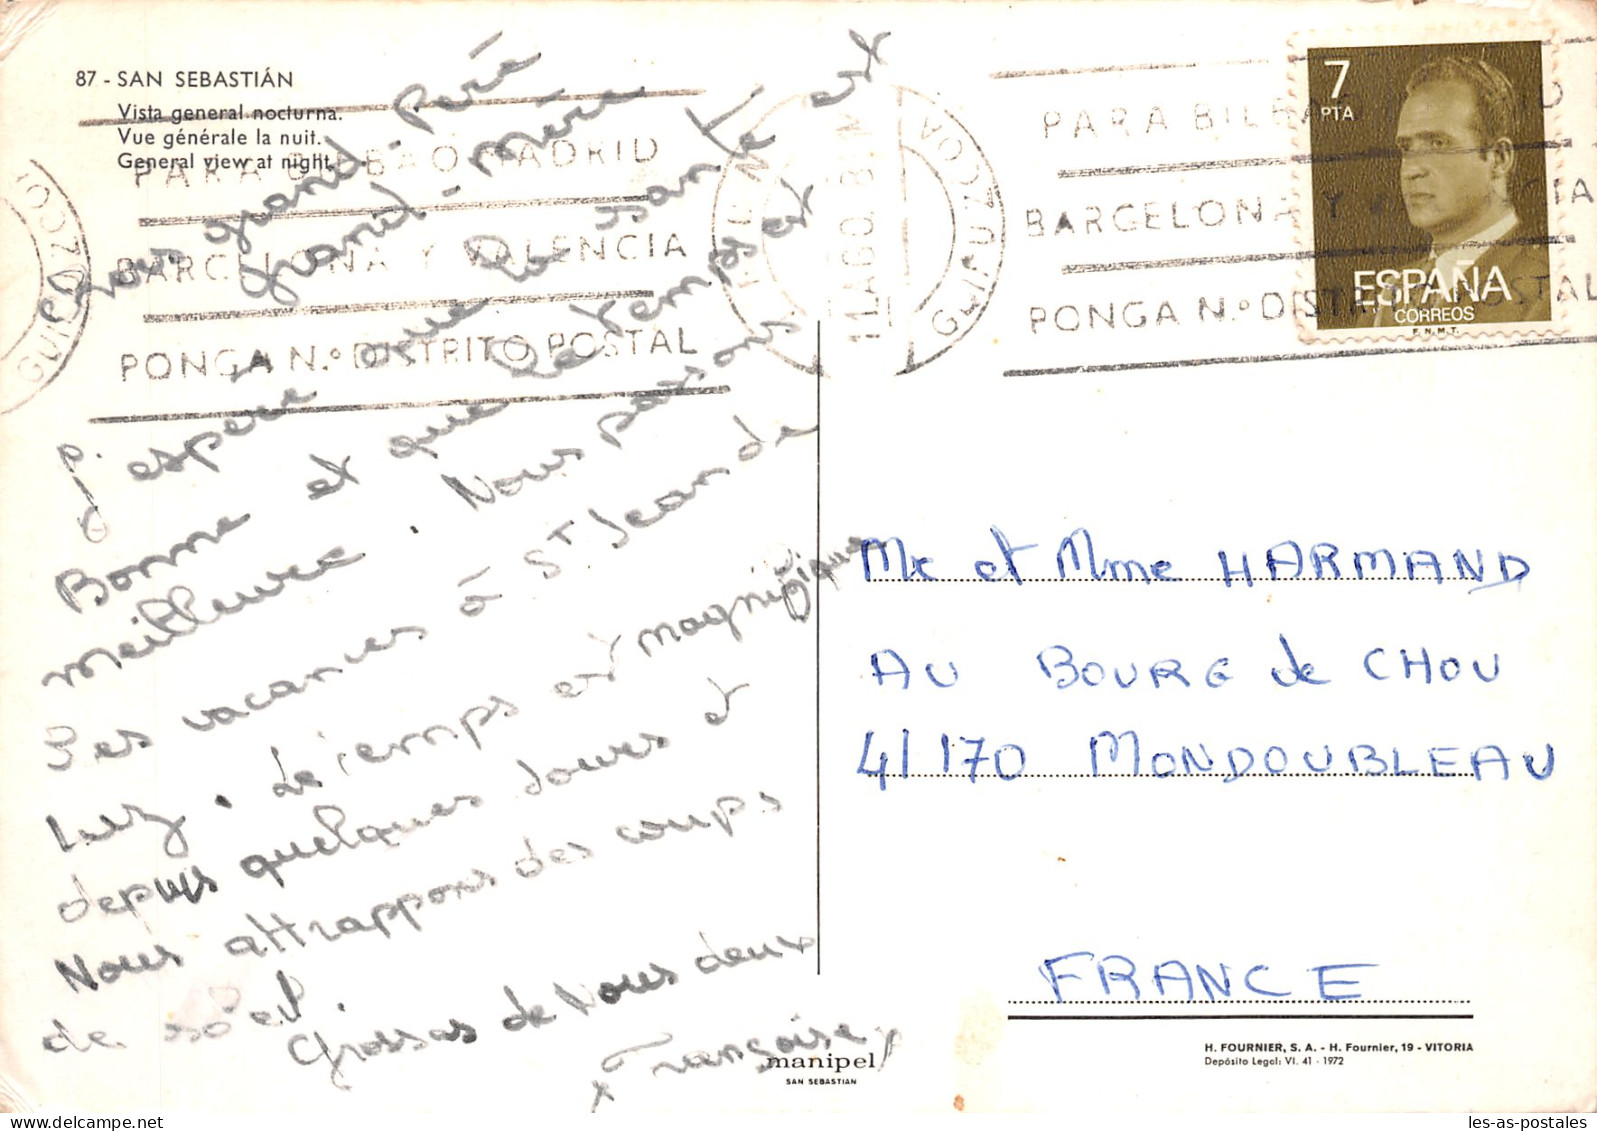 87 - SAN SEBASTIÁN
Vista general nocturna.
Vue générale la nuit.
General view at night.
PARA BILBAO MADRID
BARCELONA Y VALENCIA
PONGA N.º DISTRITO POSTAL
GUIPUZCOA
IRUN
11 AGO
GUIPUZCOA
PARA BILBAO MADRID
BARCELONA Y VALENCIA
PONGA N.º DISTRITO POSTAL
7
PTA
ESPAÑA
CORREOS
F.N.M.T.
grand-Père
grand-mère
J'espère que la ssanté est
Bonne et que le temps est
meilleure. Nous passons
3 es vacances à St Jean de
Luz. Le temps est magnifique
depuis quelques Jours et
Nous attrappons des coups
de soleil.
Grosses de Nous deux
Françoise
Mr et Mme HARMAND
AU BOURG de CHOU
41170 MONDOUBLEAU
FRANCE
H. FOURNIER, S. A. - H. Fournier, 19 - VITORIA
Depósito Legal: VI. 41 - 1972
manipel
SAN SEBASTIAN
les-as-postales